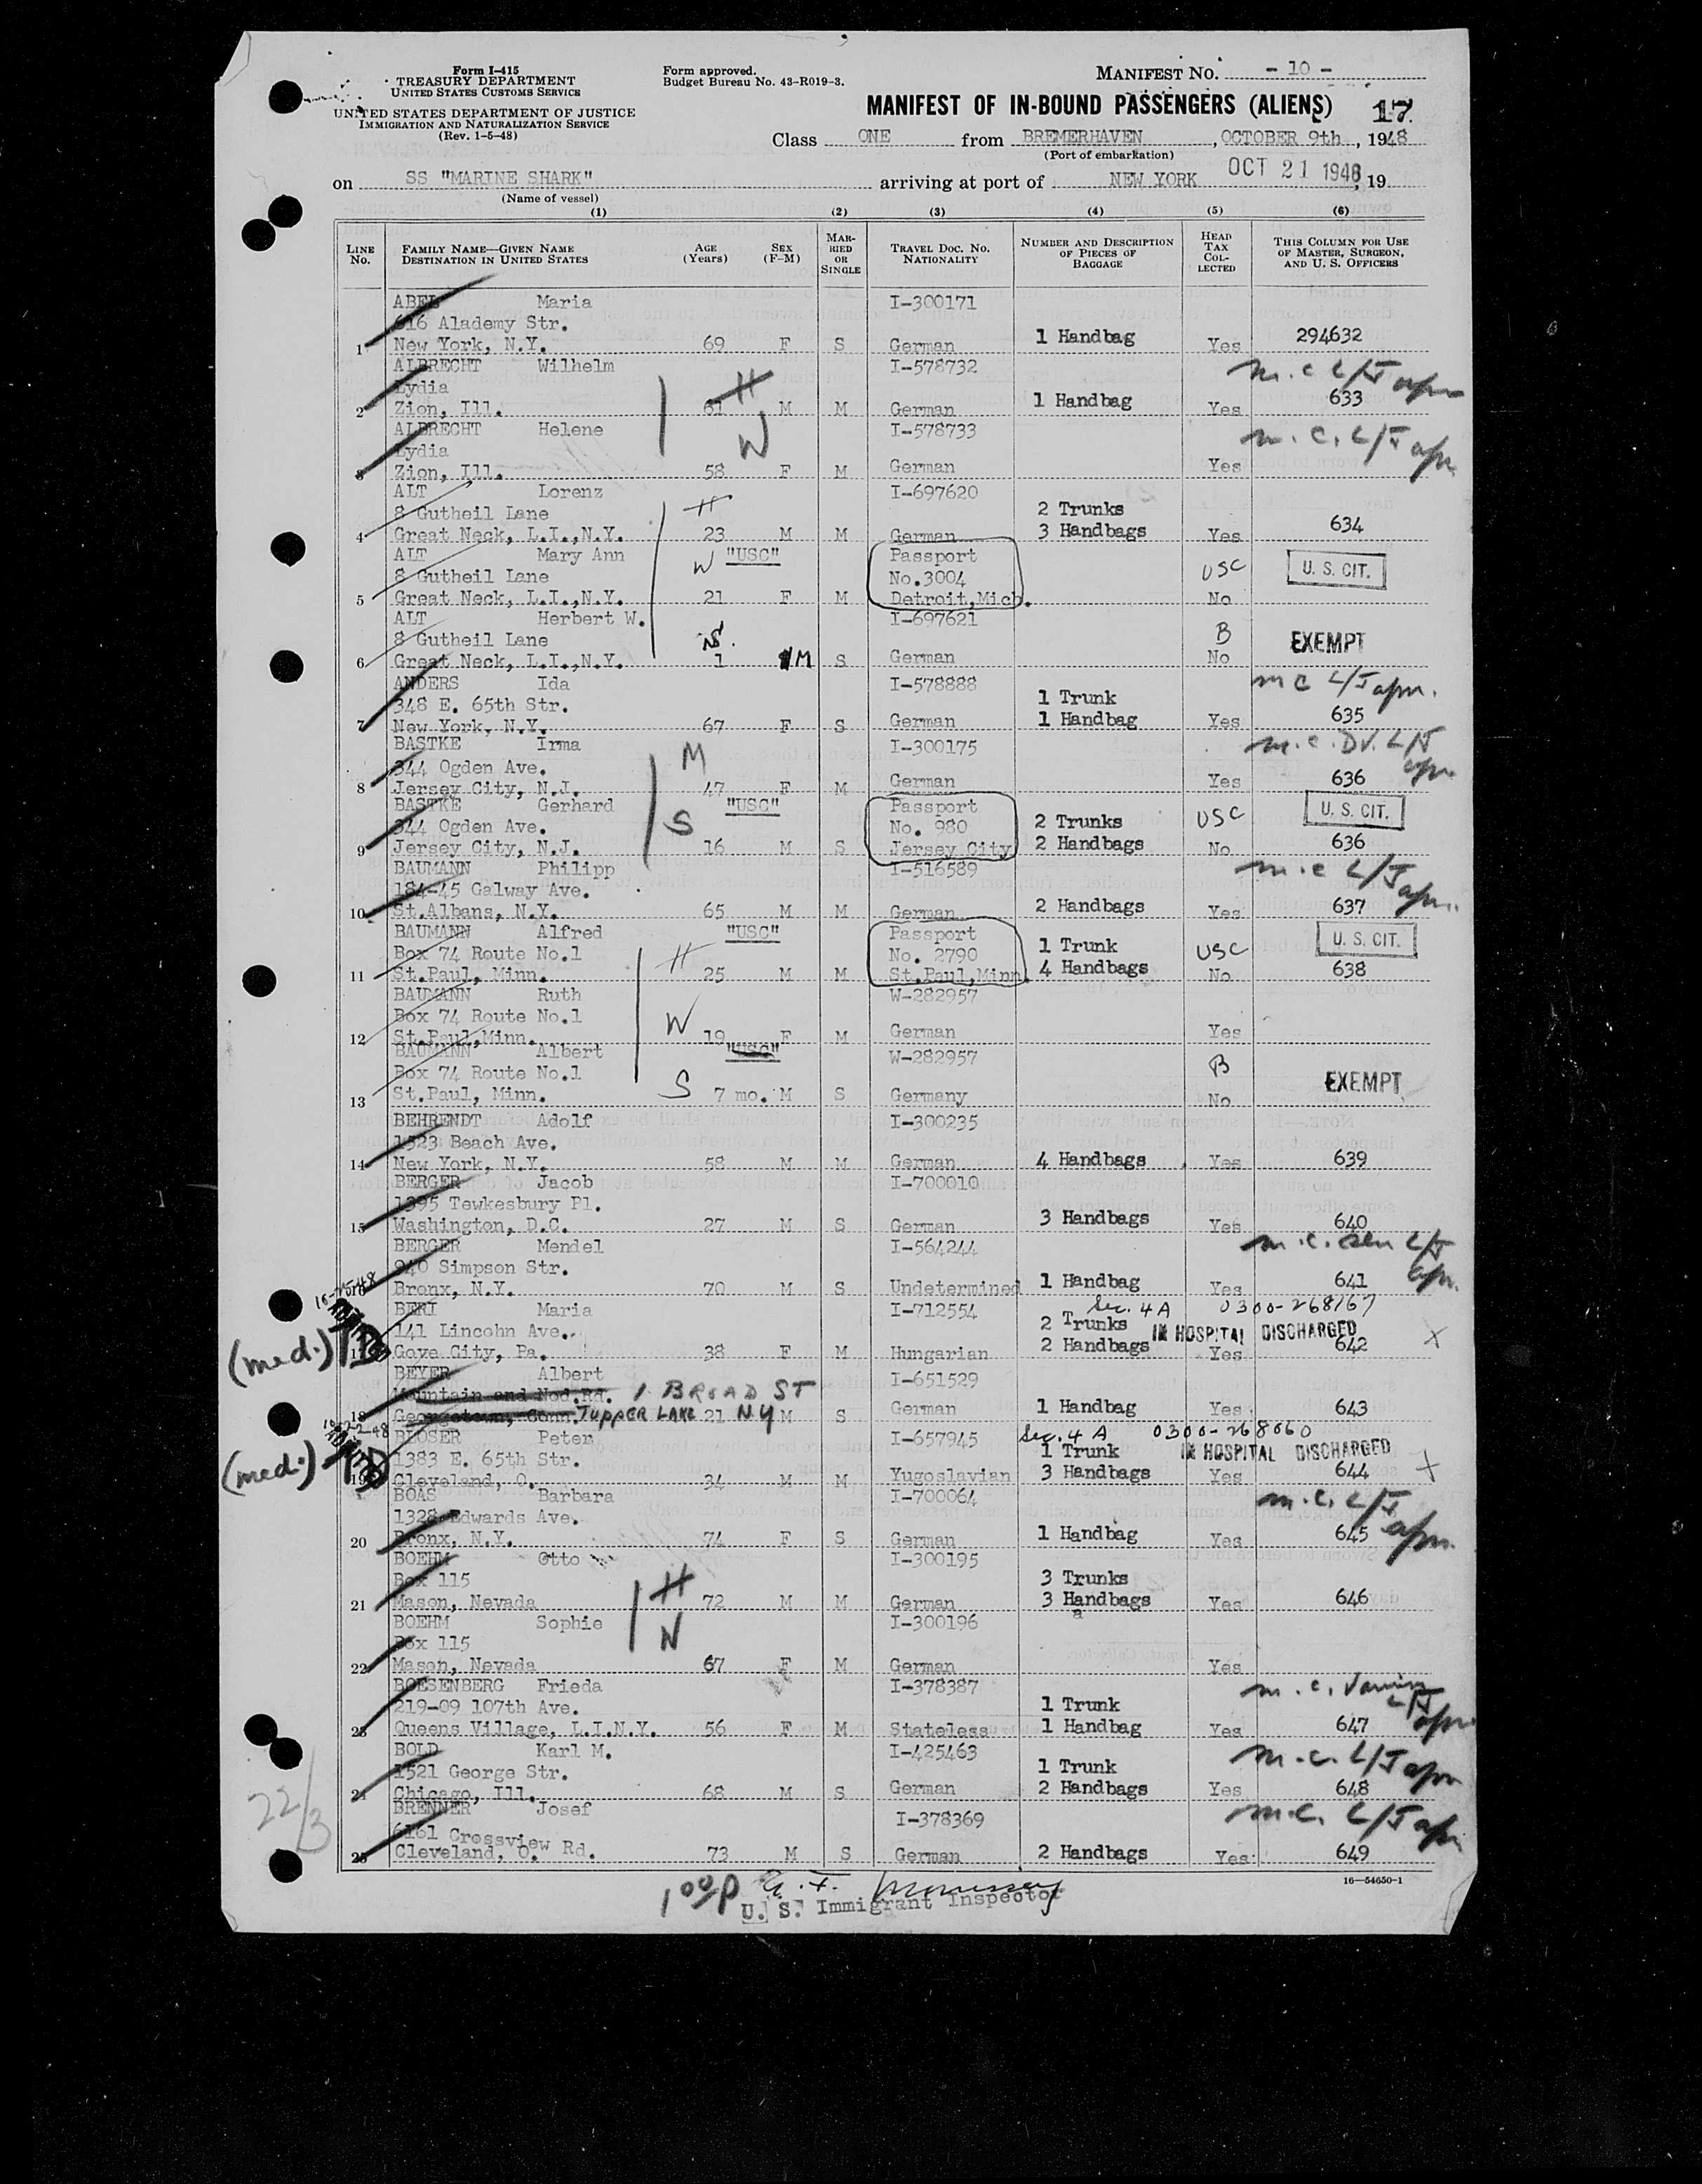 Form I-415
TREASURY DEPARTMENT
UNITED STATES CUSTOMS SERVICE
UNITED STATES DEPARTMENT OF JUSTICE
IMMIGRATION AND NATURALIZATION SERVICE
(Rev. 1-5-48)
Form approved.
Budget Bureau No. 43-R019-3.
MANIFEST NO. - 10 -
MANIFEST OF IN-BOUND PASSENGERS (ALIENS) 17
Class ONE from BREMERHAVEN, OCTOBER 9th, 1948
(Port of embarkation)
on SS "MARINE SHARK" arriving at port of NEW YORK OCT 21 1948, 19
(Name of vessel)
(1) (2) (3) (4) (5) (6)
LINE No. FAMILY NAME—GIVEN NAME DESTINATION IN UNITED STATES AGE (Years) SEX (F-M) MARRIED OR SINGLE TRAVEL DOC. NO. NATIONALITY NUMBER AND DESCRIPTION OF PIECES OF BAGGAGE HEAD TAX COLLECTED THIS COLUMN FOR USE OF MASTER, SURGEON, AND U. S. OFFICERS
ABEL Maria I-300171
616 Alademy Str.
1 New York, N.Y. 69 F S German 1 Handbag Yes 294632
ALBRECHT Wilhelm I-578732 m.c L/J
Lydia H
2 Zion, Ill. 61 M M German 1 Handbag Yes 633
ALBRECHT Helene W I-578733 m.c. L/J
Lydia
3 Zion, Ill. 58 F M German Yes
ALT Lorenz I-697620
8 Gutheil Lane H 2 Trunks
4 Great Neck, L.I.,N.Y. 23 M M German 3 Handbags Yes 634
ALT Mary Ann W "USC" Passport USC U. S. CIT.
8 Gutheil Lane No.3004
5 Great Neck, L.I.,N.Y. 21 F M Detroit,Mich. No
ALT Herbert W. I-697621
8 Gutheil Lane S B EXEMPT
6 Great Neck, L.I.,N.Y. 1 M S German No
ANDERS Ida I-578888 m c L/J
348 E. 65th Str. 1 Trunk
7 New York, N.Y. 67 F S German 1 Handbag Yes 635
BASTKE Irma M I-300175 m.c. DV. L/J
344 Ogden Ave.
8 Jersey City, N.J. 47 F M German Yes 636
BASTKE Gerhard "USC" Passport USC U. S. CIT.
344 Ogden Ave. S No. 980 2 Trunks
9 Jersey City, N.J. 16 M S Jersey City 2 Handbags No 636
BAUMANN Philipp I-516589 m.c L/J
184-45 Galway Ave.
10 St.Albans, N.Y. 65 M M German 2 Handbags Yes 637
BAUMANN Alfred "USC" Passport U. S. CIT.
Box 74 Route No.1 H No. 2790 1 Trunk USC
11 St.Paul, Minn. 25 M M St.Paul,Minn. 4 Handbags No 638
BAUMANN Ruth W-282957
Box 74 Route No.1 W
12 St.Paul,Minn. 19 F M German Yes
BAUMANN Albert "USC" W-282957
Box 74 Route No.1 B EXEMPT
13 St.Paul, Minn. S 7 mo. M S Germany No
BEHRENDT Adolf I-300235
1523 Beach Ave.
14 New York, N.Y. 58 M M German 4 Handbags Yes 639
BERGER Jacob I-700010
1395 Tewkesbury Pl.
15 Washington, D.C. 27 M S German 3 Handbags Yes 640
BERGER Mendel I-564244 m.c. sen L/J
940 Simpson Str.
16 Bronx, N.Y. 70 M S Undetermined 1 Handbag Yes 641
BERI Maria I-712554 Sec. 4A 0300-268167
141 Lincohn Ave. 2 Trunks IN HOSPITAL DISCHARGED
(med.) 17 Gove City, Pa. 38 F M Hungarian 2 Handbags Yes 642 X
BEYER Albert I-651529
Mountain and Nod.Rd. 1 BROAD ST
18 Georgetown, Conn. TUPPER LAKE 21 N.Y M S German 1 Handbag Yes 643
BLOSER Peter I-657945 Sec. 4 A 0300-268060
1383 E. 65th Str. 1 Trunk IN HOSPITAL DISCHARGED
(med.) 19 Cleveland, O. 34 M M Yugoslavian 3 Handbags Yes 644 X
BOAS Barbara I-700064 m.c. L/J
1328 Edwards Ave.
20 Bronx, N.Y. 74 F S German 1 Handbag Yes 645
BOEHM Otto I-300195
Box 115 H 3 Trunks
21 Mason, Nevada 72 M M German 3 Handbags Yes 646
BOEHM Sophie W I-300196
Box 115
22 Mason, Nevada 67 F M German Yes
BOESENBERG Frieda I-378387 m.c. L/J
219-09 107th Ave. 1 Trunk
23 Queens Village, L.I.N.Y. 56 F M Stateless 1 Handbag Yes 647
BOLD Karl M. I-425463 m.c. L/J
1521 George Str. 1 Trunk
24 Chicago, Ill. 68 M S German 2 Handbags Yes 648
BRENNER Josef I-378369 m.c. L/J
6161 Crossview Rd.
25 Cleveland, O. 73 M S German 2 Handbags Yes 649
22/3
16—54650-1
U. S. Immigrant Inspector